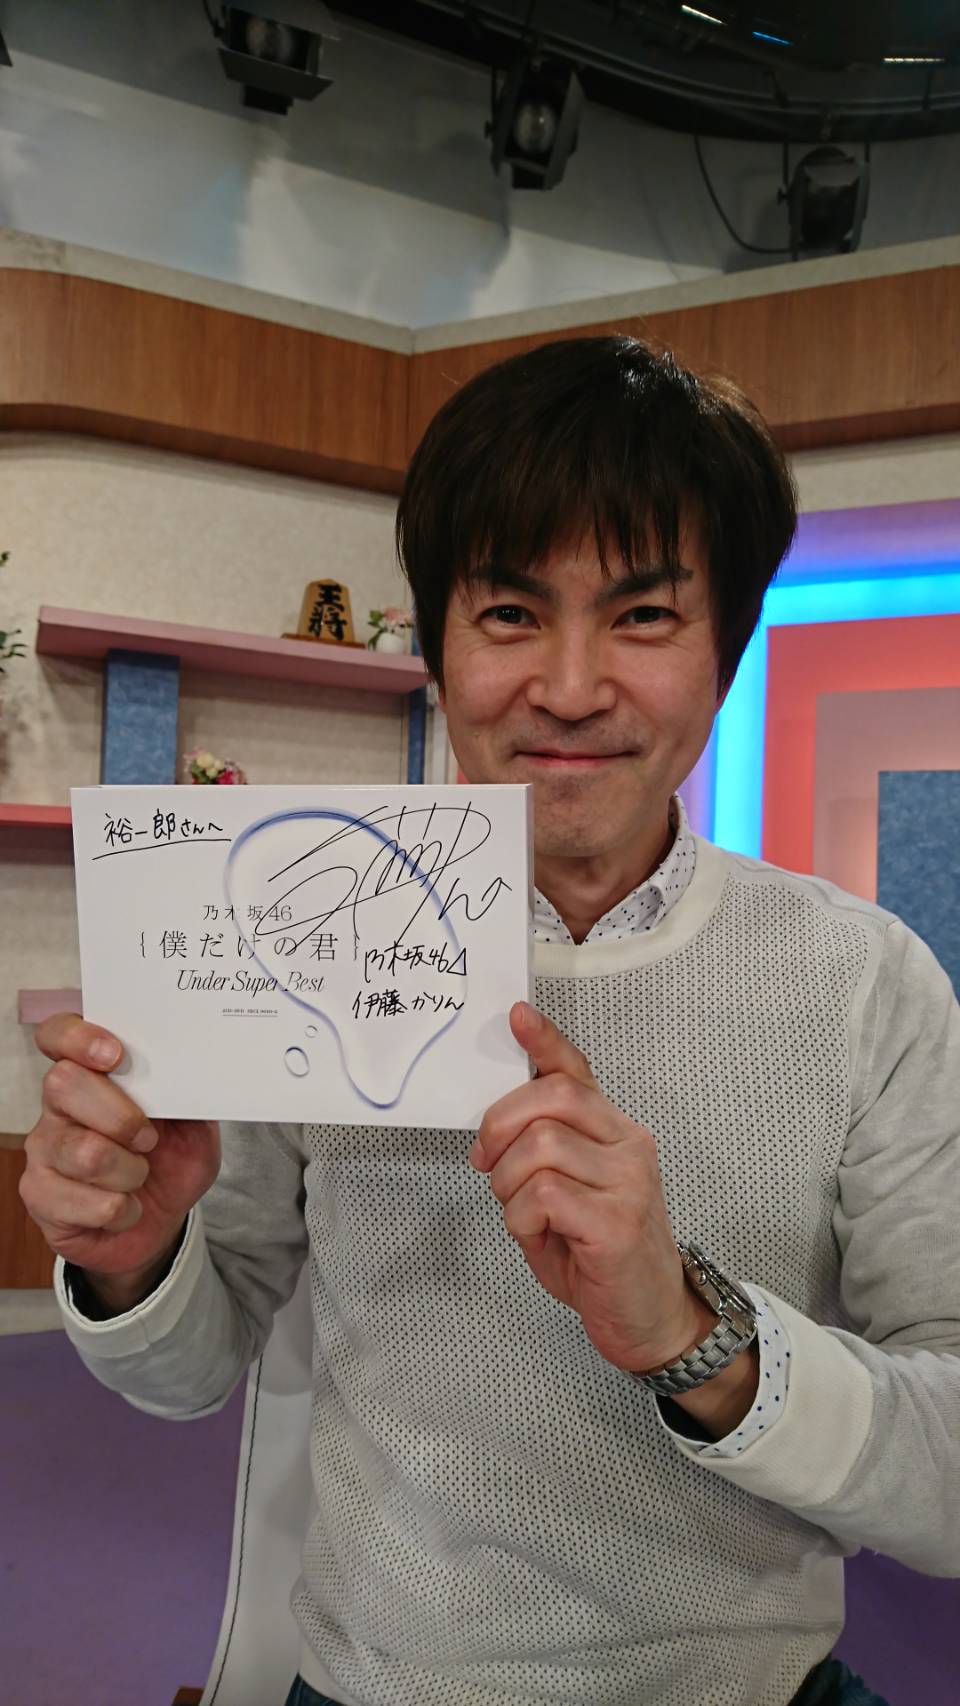 王将
裕一郎さんへ
乃木坂46
{僕だけの君}
Under Super Best
乃木坂46
伊藤かりん